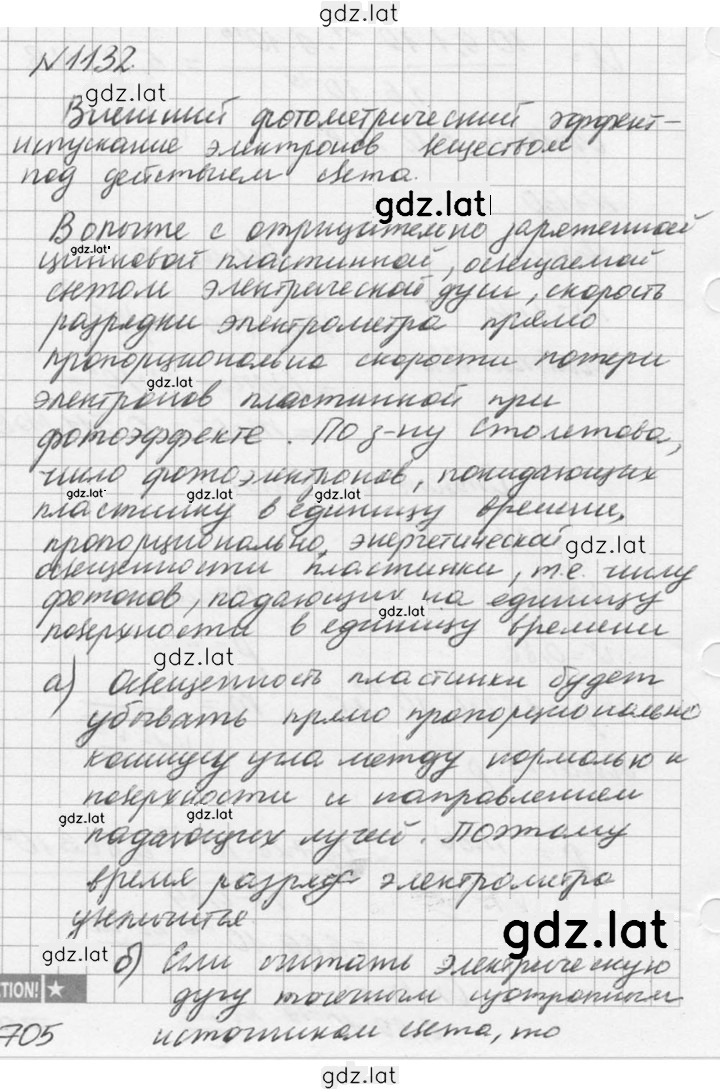 gdz.lat
№1132.
gdz.lat
Внешний фотометрический эффект-
испускание электронов веществом
под действием света.
gdz.lat
В опыте с отрицательно заряженной
gdz.lat
цинковой пластинкой, освещаемой
светом электрической дуги, скорость
разрядки электрометра прямо
пропорциональна скорости потери
gdz.lat
электронов пластинкой при
фотоэффекте. По з-ну Столетова,
число фотоэлектронов, покидающих
gdz.lat gdz.lat gdz.lat
пластинку в единицу времени,
пропорционально энергетической
gdz.lat
освещенности пластинки, т.е. числу
фотонов, падающих на единицу
gdz.lat
поверхности в единицу времени
gdz.lat
а) Освещенность пластинки будет
убывать прямо пропорционально
косинусу угла между нормалью к
поверхности и направлением
gdz.lat gdz.lat
падающих лучей. Поэтому
время разряда электрометра
увеличится
gdz.lat
gdz.lat
б) Если считать электрическую
TION!
дугу точечным изотропным
705
источником света, то
gdz.lat